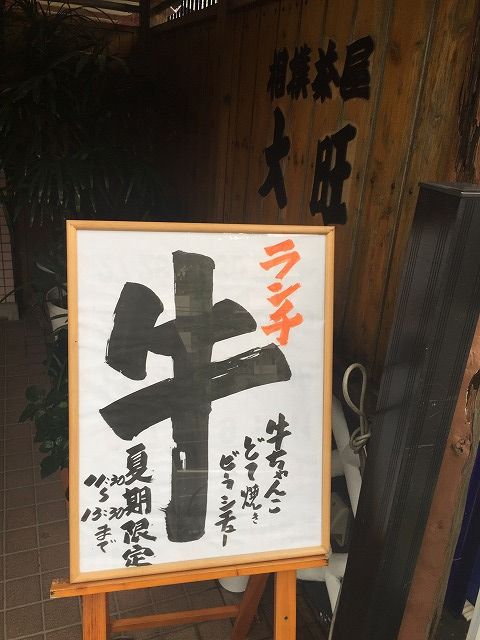 相撲茶屋
大旺
ランチ
牛
牛ちゃんこ
どて焼き
ビーフシチュー
夏期限定
11:30
〜
13:30まで